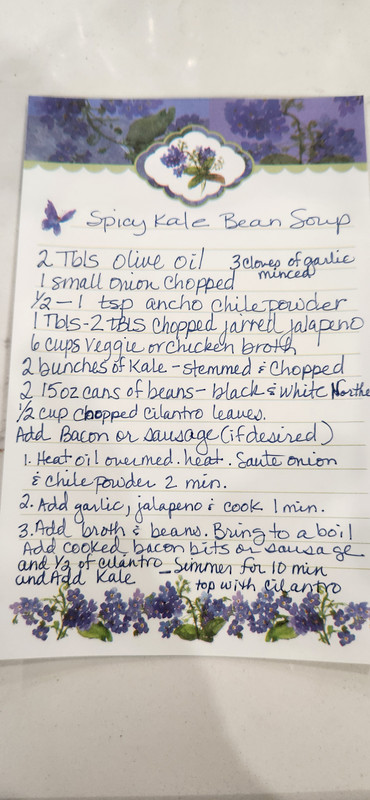 Spicy Kale Bean Soup
2 Tbls olive oil 3 cloves of garlic minced
1 small onion chopped
1/2 - 1 tsp ancho chile powder
1 Tbls-2 Tbls chopped jarred jalapeno
6 cups veggie or chicken broth
2 bunches of Kale - stemmed & chopped
2 15oz cans of beans - black & white Northe
1/2 cup chopped cilantro leaves.
Add Bacon or sausage (if desired)
1. Heat oil over med. heat. Saute onion
& chile powder 2 min.
2. Add garlic, jalapeno & cook 1 min.
3. Add broth & beans. Bring to a boil
Add cooked bacon bits or sausage
and 1/2 of cilantro - Simmer for 10 min
and Add Kale top with cilantro